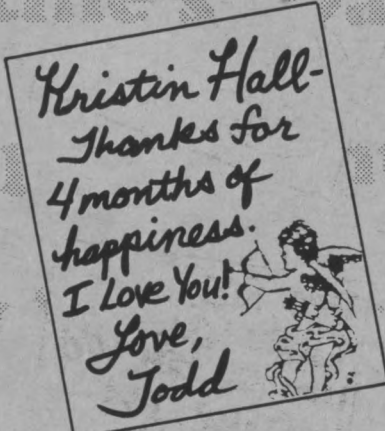 Kristin Hall-
Thanks for
4 months of
happiness.
I Love You!
Love,
Todd